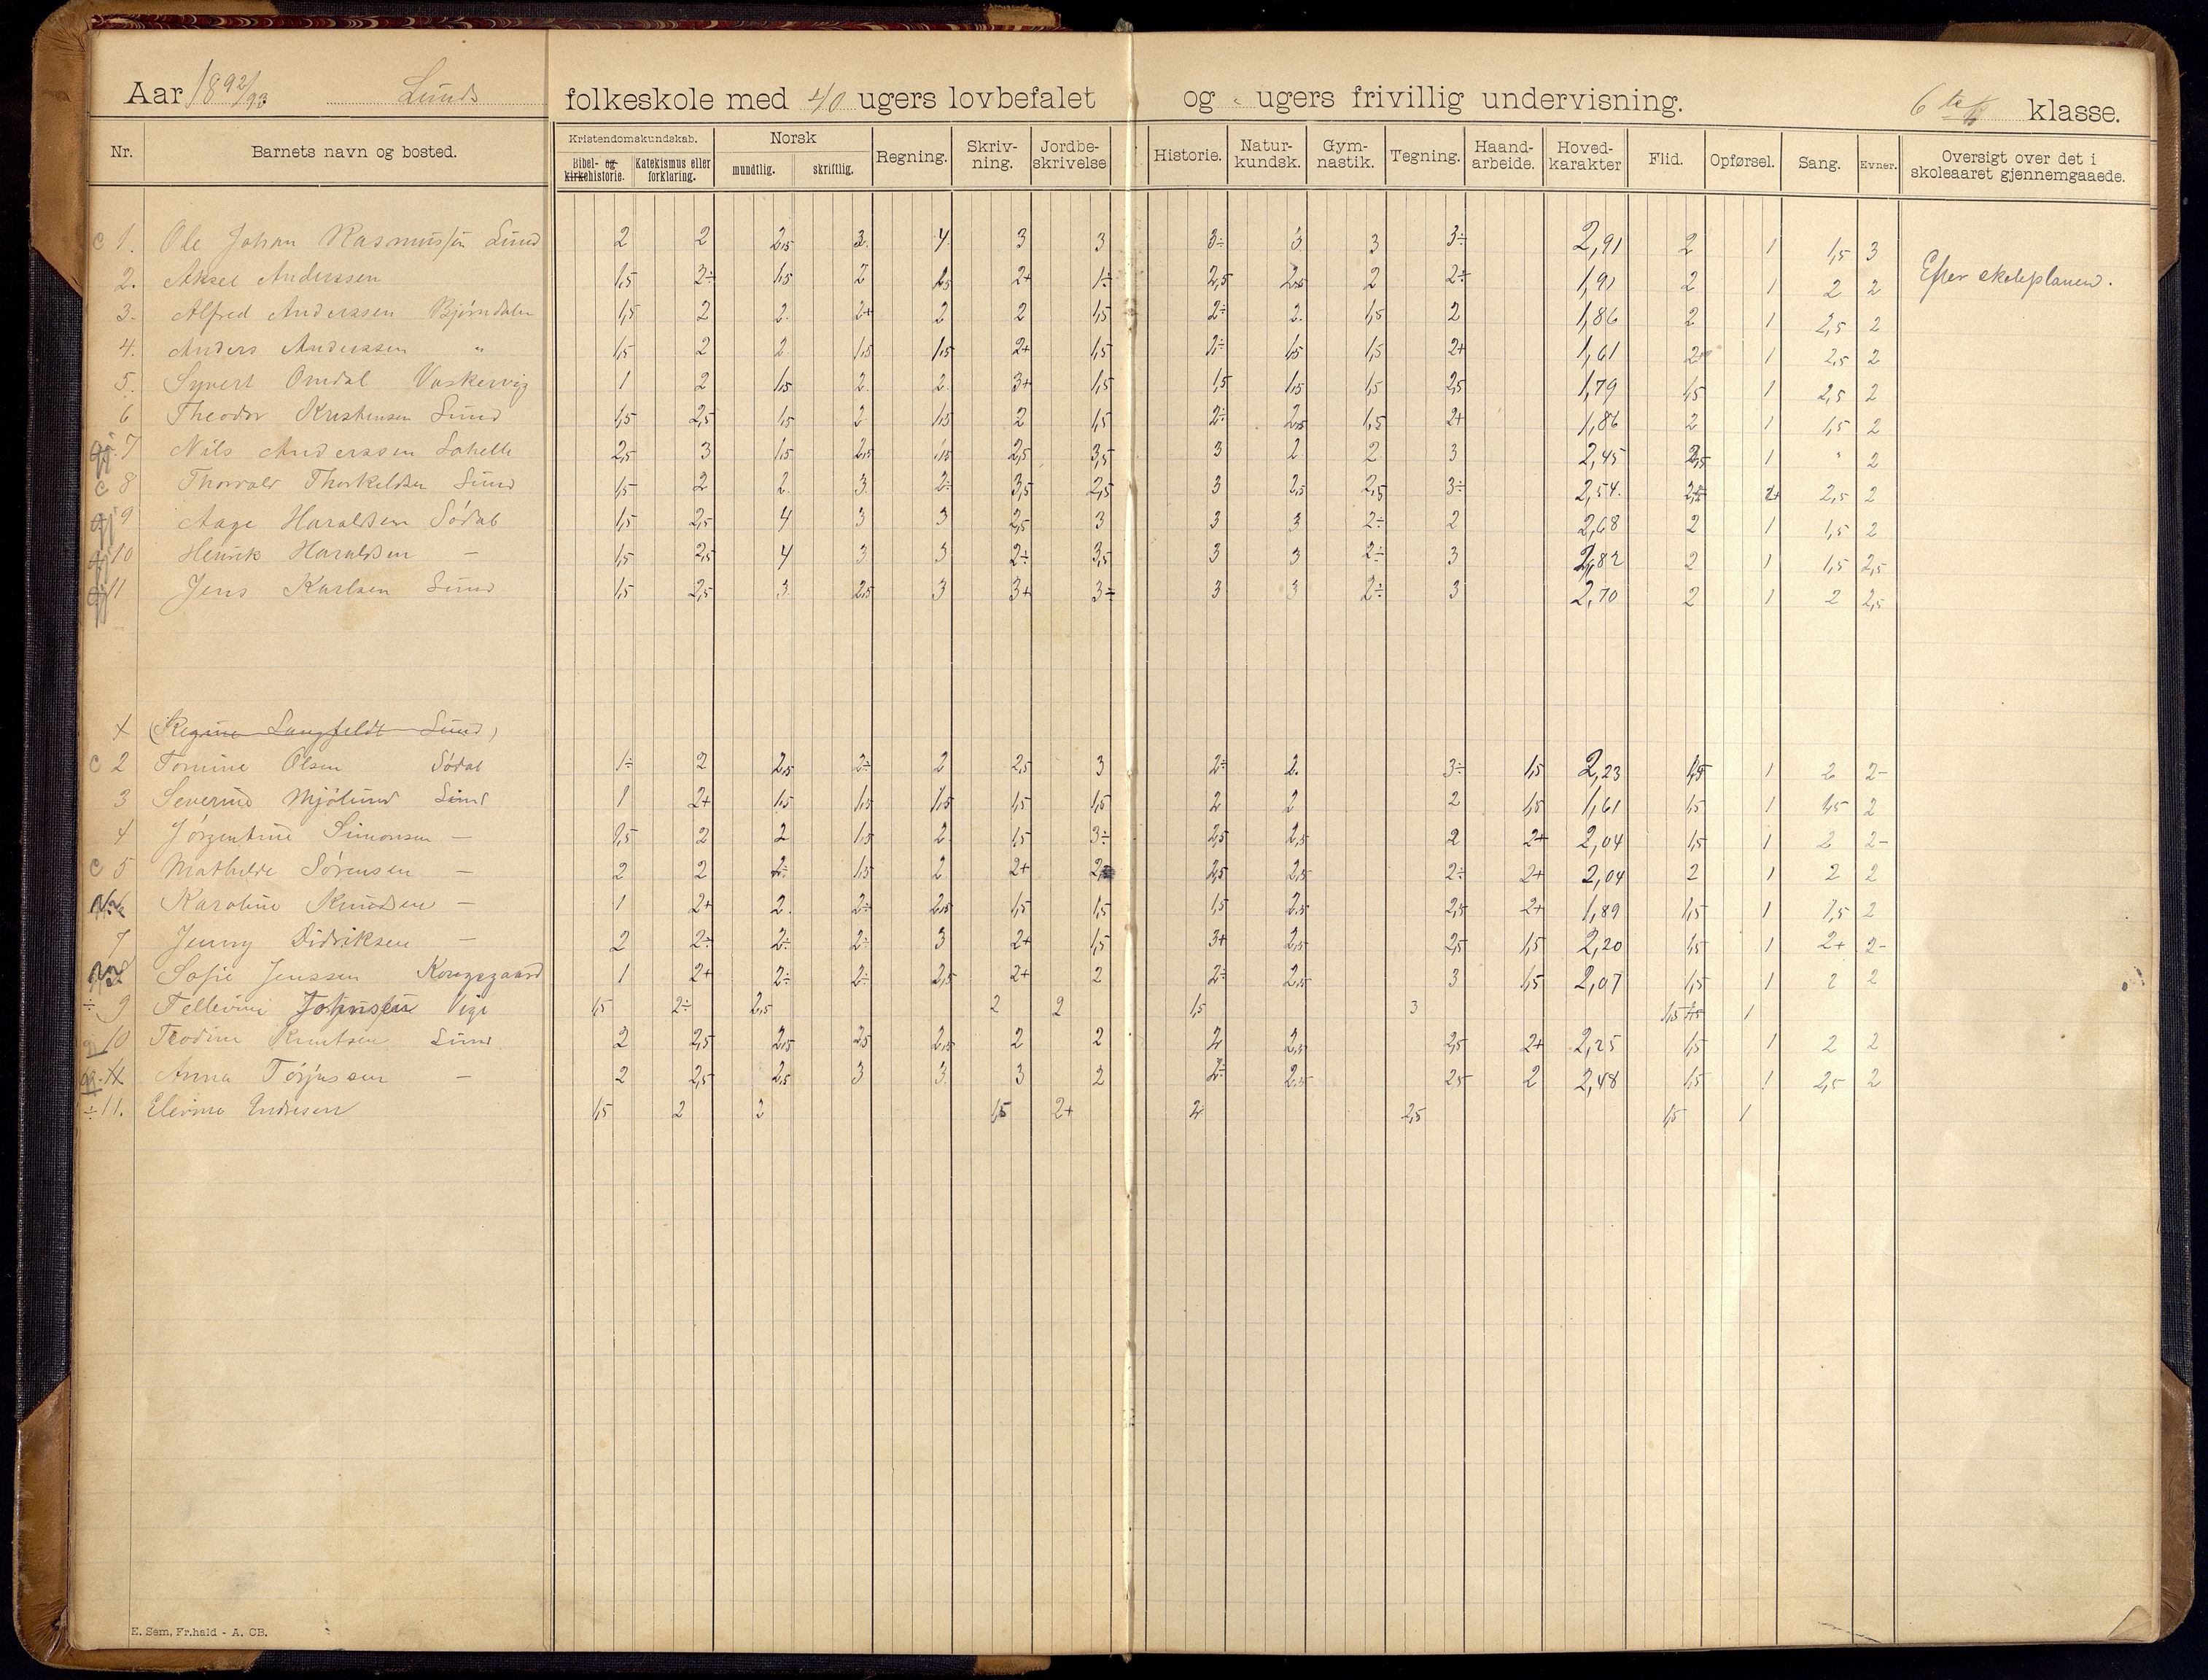 Aar 1892/93 Lunds folkeskole med 40 ugers lovbefalet og - ugers frivillig undervisning. 6te klasse.
Nr. Barnets navn og bosted. Kristendomskundskab. Norsk Regning. Skriv-ning. Jordbe-skrivelse Historie. Natur-kundsk. Gym-nastik. Tegning. Haand-arbeide. Hoved-karakter Flid. Opførsel. Sang. Evner. Oversigt over det i skoleaaret gjennemgaaede.
Bibel- og kirkehistorie. Katekismus eller forklaring. mundtlig. skriftlig.
c 1. Ole Johan Rasmussen Lund 2 2 2,5 3. 4. 3 3 3÷ 3 3 3÷ 2,91 2 1 1,5 3
2. Aksel Anderssen 1,5 3÷ 1,5 2 1,5 2+ 1÷ 2,5 2,5 2 2÷ 1,91 2 1 2 2 Efter skoleplanen.
3. Alfred Anderssen Bjørndalen 1,5 2 2. 2+ 2 2 1,5 2÷ 2. 1,5 2 1,86 2 1 2,5 2
4. Anders Anderssen " 1,5 2 2. 1,5 1,5 2+ 1,5 2÷ 1,5 1,5 2+ 1,61 2+ 1 2,5 2
5. Syvert Omdal Vaskervig 1 2 1,5 2. 2. 3+ 1,5 1,5 1,5 1,5 2,5 1,79 1,5 1 2,5 2
6 Theodor Kristensen Lund 1,5 2,5 1,5 2 1,5 2 1,5 2÷ 2,5 1,5 2+ 1,86 2 1 1,5 2
gj. 7 Nils Anderssen Lahelle 2,5 3 1,5 2,5 1,5 2,5 3,5 3 2 2 3 2,45 2,5 1 " 2
c 8 Thorvald Thorkildsen Lund 1,5 2 2. 3. 2÷ 3,5 2,5 3 2,5 2,5 3÷ 2,54. 2+ 2,5 2
gj 9 Aage Haraldsen Sødal 1,5 2,5 4 3 3 2,5 3 3 3 2÷ 2 2,68 2 1 1,5 2
gj 10 Henrik Haraldsen — 1,5 2,5 4 3 3 2÷ 3,5 3 3 2÷ 3 2,82 2 1 1,5 2,5
gj 11 Jens Karlsen Lund 1,5 2,5 3. 2,5 3 3+ 3÷ 3 3 2÷ 3 2,70 2 1 2 2,5
(Regine Langfeldt Lund)
c 2 Tomine Olsen Sødal 1÷ 2 2,5 2÷ 2 2,5 3 2÷ 2. 3÷ 1,5 2,23 1,5 1 2 2-
3 Severine Mjølund Lund 1 2+ 1,5 1,5 1,5 1,5 1,5 2 2 2 1,5 1,61 1,5 1 1,5 2
4 Jørgentine Simonsen — 1,5 2 2 1,5 2. 1,5 3÷ 2,5 2,5 2 2+ 2,04 1,5 1 2 2-
c 5 Mathilde Sørensen — 2 2 2÷ 1,5 2 2+ 2,5 2,5 2÷ 2+ 2,04 2 1 2 2
Karoline Knudsen — 1 2+ 2. 2÷ 2,5 1,5 1,5 1,5 2,5 2,5 2+ 1,89 1,5 1 1,5 2
7 Jenny Didriksen — 2 2÷ 2÷ 2÷ 3 2+ 1,5 3+ 2,5 2,5 1,5 2,20 1,5 1 2+ 2-
Sofie Jenssen Kongsgaard 1 2+ 2÷ 2÷ 2,5 2+ 2 2÷ 2,5 3 1,5 2,07 1,5 1 2 2
÷ 9 Tellevine Johnsen Vige 1,5 2÷ 2,5 2 2 1,5 3 1,5 1
10 Teodine Knutsen Lund 2 2,5 2,5 2,5 2,5 2 2 2 2,5 2,5 2+ 2,25 1,5 1 2 2
Anna Torjussen — 2 2,5 2,5 3 3. 3 2 2÷ 2,5 2,5 2 2,48 1,5 1 2,5 2
÷ 11. Elevine Endresen 1,5 2 2 1,5 2+ 2 2,5 1,5 1
E. Sem, Fr.hald - A. CB.